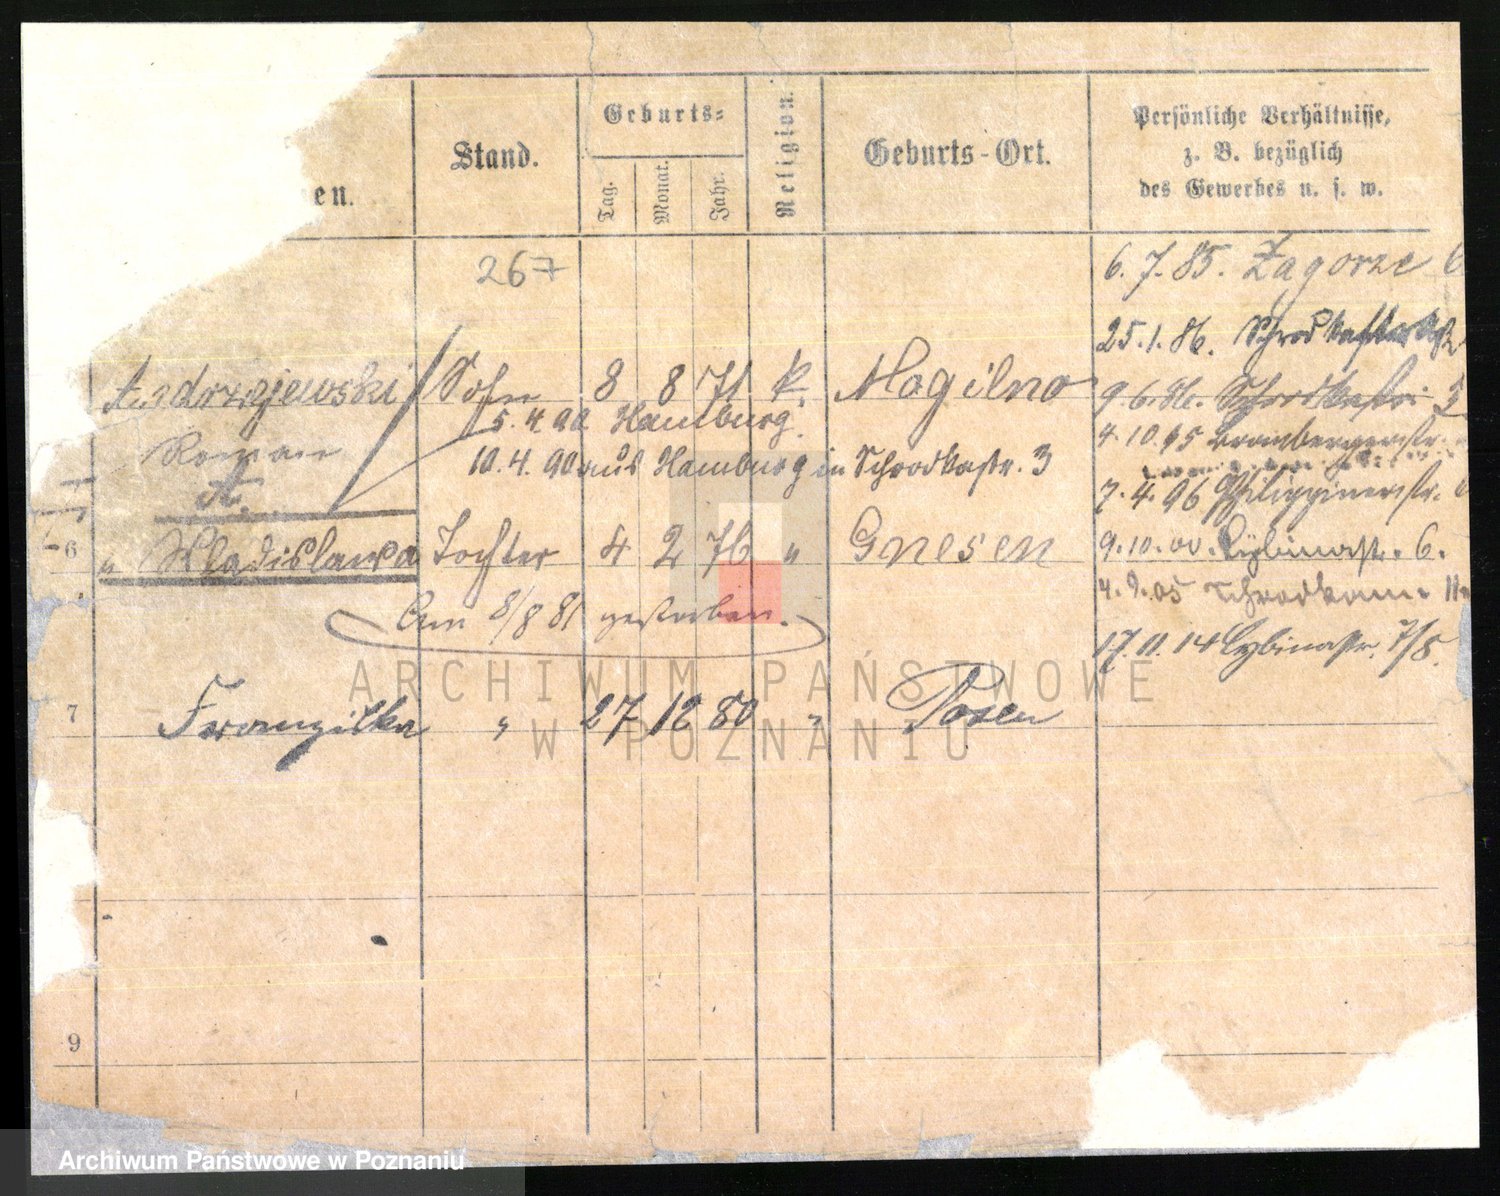 en.
Stand.
Geburts-
Tag.
Monat.
Jahr.
Religion.
Geburts-Ort.
Persönliche Verhältnisse,
z. B. bezüglich
des Gewerbes u. s. w.
267
6. 7. 85. Zagorze 6
25. 1. 86.
Andrzejewski Sohn 8 8 71 k. Mogilno
9. 6. 86.
5. 4. 90 Hamburg.
Roman
4. 10. 95 Brombergerstr.
10. 4. 90 aus Hamburg in Schrodkastr. 3
A.
7. 4. 96 Philippinerstr.
6 " Wladislawa Tochter 4 2 76 " Gnesen
9. 10. 00. Cybinastr. 6.
4. 9. 05
Am 8/8 81 gestorben.
17. 11. 14 Cybinastr. 7/8.
7 Franziska " 27 12 80 " Posen
9
ARCHIWUM PAŃSTWOWE
W POZNANIU
Archiwum Państwowe w Poznaniu